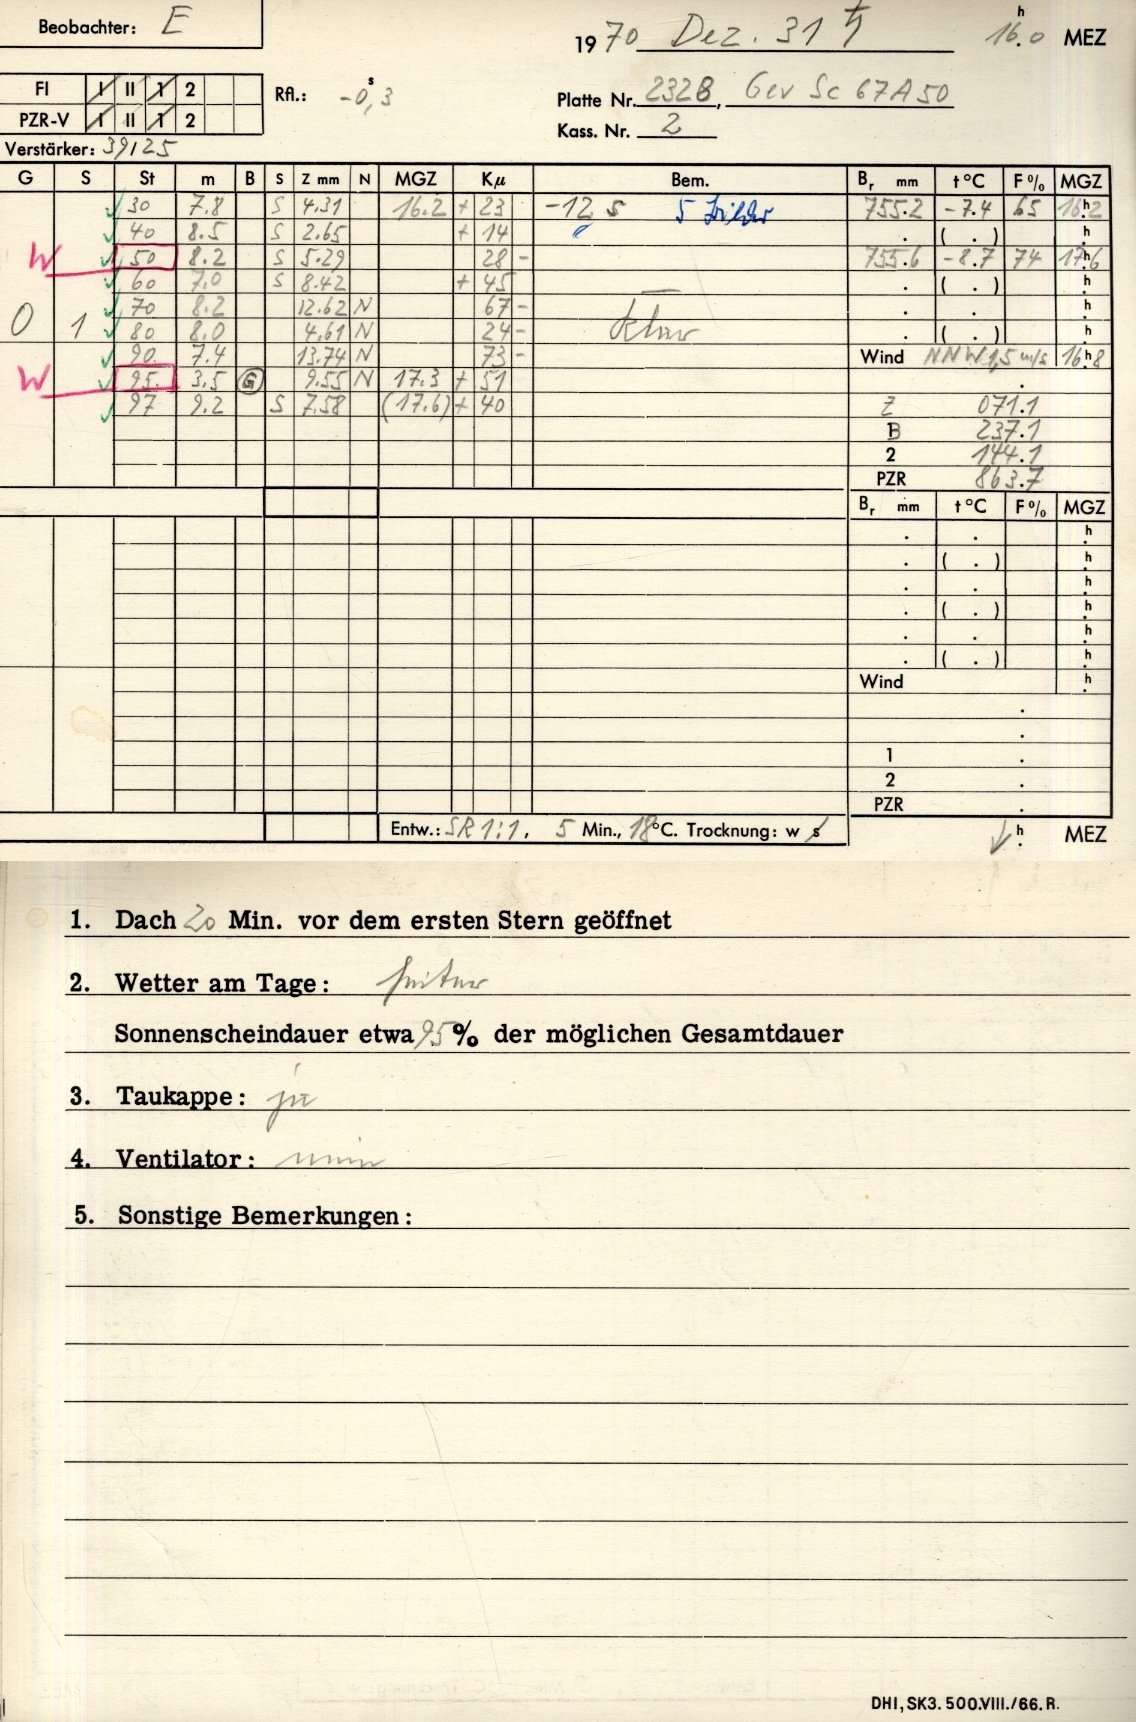 Beobachter: E
1970 Dez. 31 16.0 h MEZ
FI I II 1 2
Rfl.: -0,3 s
Platte Nr. 232B, Gev Sc 67A50
PZR-V I II 1 2
Kass. Nr. 2
Verstärker: 39/25
G S St m B S Z mm N MGZ Kμ Bem. Br mm t °C F % MGZ
30 7.8 S 4.31 16.2 + 23 -12 s 5 Bilder 755.2 -7.4 65 16h2
40 8.5 S 2.65 + 14 . ( . ) h
W 50 8.2 S 5.29 28 - 755.6 -8.7 74 17h6
60 7.0 S 8.42 + 45 . ( . ) h
70 8.2 12.62 N 67 - . . h
0 1 80 8.0 4.61 N 24 - klar . ( . ) h
90 7.4 13.74 N 73 - Wind NNW 1,5 m/s 16h8
W 95 3.5 G 9.55 N 17.3 + 51 .
97 9.2 S 7.58 (17.6) + 40 Z 071.1
B 237.1
2 144.1
PZR 863.7
Br mm t °C F % MGZ
. . h
. ( . ) h
. . h
. ( . ) h
. . h
. ( . ) h
Wind h
.
.
1 .
2 .
PZR .
Entw.: SR 1:1, 5 Min., 18 °C. Trocknung: w s
h MEZ
1. Dach 20 Min. vor dem ersten Stern geöffnet
2. Wetter am Tage: heiter
Sonnenscheindauer etwa 95 % der möglichen Gesamtdauer
3. Taukappe: ja
4. Ventilator: nein
5. Sonstige Bemerkungen:
DHI, SK3. 500.VIII./66. R.